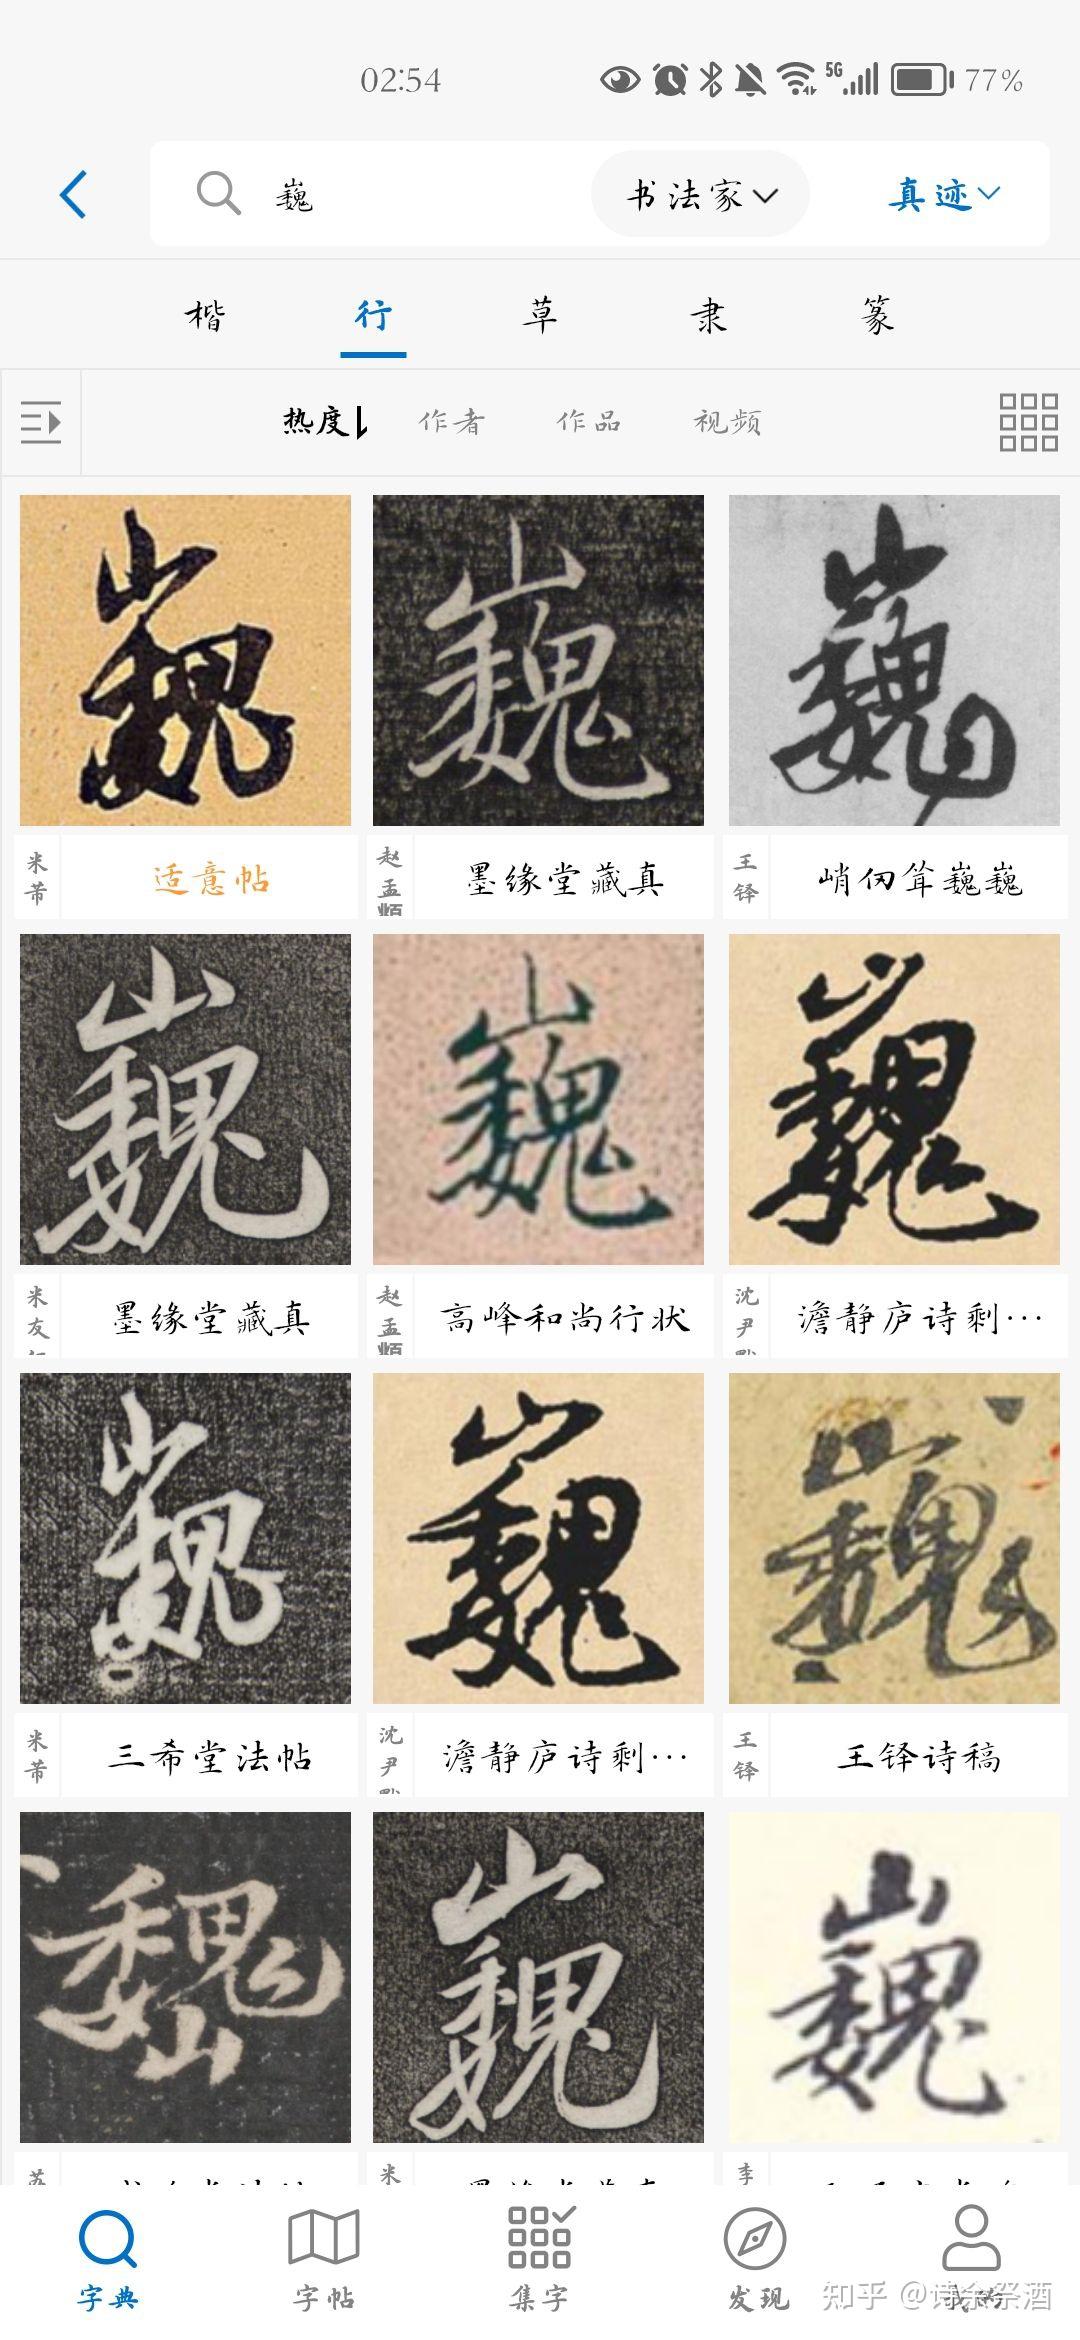 02:54 5G 77%
巍 书法家 真迹
楷 行 草 隶 篆
热度 作者 作品 视频
巍 巍 巍
米芾 适意帖 赵孟頫 墨缘堂藏真 王铎 峭仞耸巍巍
巍 巍 巍
米友 墨缘堂藏真 赵孟頫 高峰和尚行状 沈尹默 澹静庐诗剩…
巍 巍 巍
米芾 三希堂法帖 沈尹默 澹静庐诗剩… 王铎 王铎诗稿
巍 巍 巍
苏 米 李
字典 字帖 集字 发现 我的
知乎 @诗余祭酒